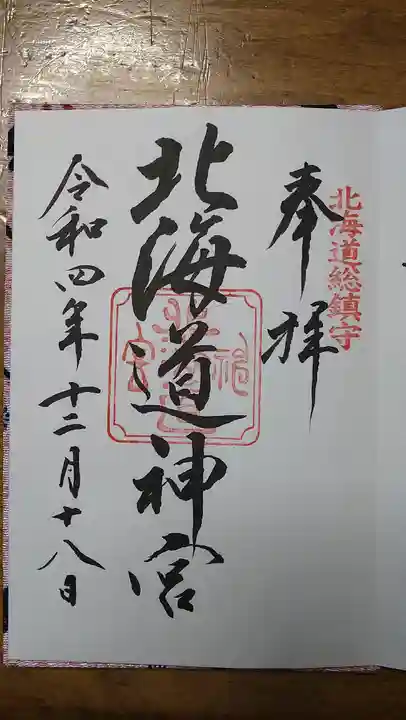 北海道総鎮守
奉拝
北海道神宮
令和四年十二月十八日